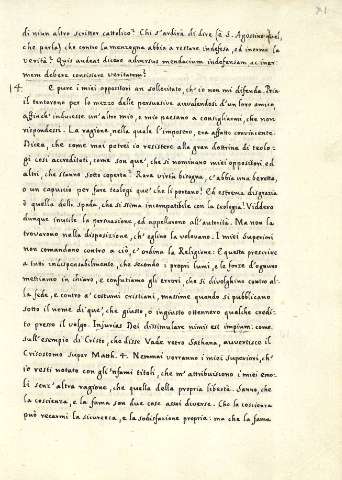 71
di niun altro scrittor cattolico? Chi s'ardirà di dire (è S. Agostino quel,
che parla) che contro la menzogna abbia a restare indefesa, ed inerme la
verità? Quis audeat dicere adversus mendacium indefensam ac iner-
mem debere consistere veritatem?
14. E pure i miei oppositori an sollecitato, ch'io non mi difenda. Pria
il tentarono per lo mezzo delle persuasive avvalendosi d'un loro amico,
affinch'inducesse un'altro mio, e mio paesano a consigliarmi, che non
rispondessi. La ragione, nella quale l'impostero, era affatto convincente.
Dicea, che come mai potrei io resistere alla gran dottrina di teolo-
gi così accreditati, come son que', che si nominano miei oppositori ed
altri, che stanno sotto coperta? Rara virtù bisogna, c'abbia una beretta,
o un capuccio per fare teologi que' che li portano! Ed estrema disgrazia
è quella delli spada, che si stima incompatibile con la teologia! Viddero
dunque inutile la persuasione, ed appellarono all'autorità. Ma non la
trovarono nella disposizione, ch'eglino la volevano. I miei Superiori
non comandano contro a ciò, c'ordina la Religione: E questa prescrive
a tutti indispensabilmente, che secondo i propri lumi, e le forze d'ognuno
mettiamo in chiaro, e confutiamo gli errori, che si divolghino contro al-
la fede, e contro a' costumi cristiani, massime quando si pubblicano
sotto il nome di que', che giusto, o ingiusto ottennero qualche credi-
to presso il volgo. Injurias Dei dissimulare nimis est impium. come,
sull'esempio di Cristo, che disse Vade retro Sathana, avvertisce il
Crisostomo super Matth. 4. Nemmai vorranno i miei superiori, ch'
io resti notato con gl'infami titoli, che m'attribuiscono i miei emo-
li senz'altra ragione, che quella della propria libertà. Sanno, che
la coscienza, e la fama son due cose assai diverse. Che la coscienza
può recarmi la sicurezza, e la sodisfazione propria: ma che la fama